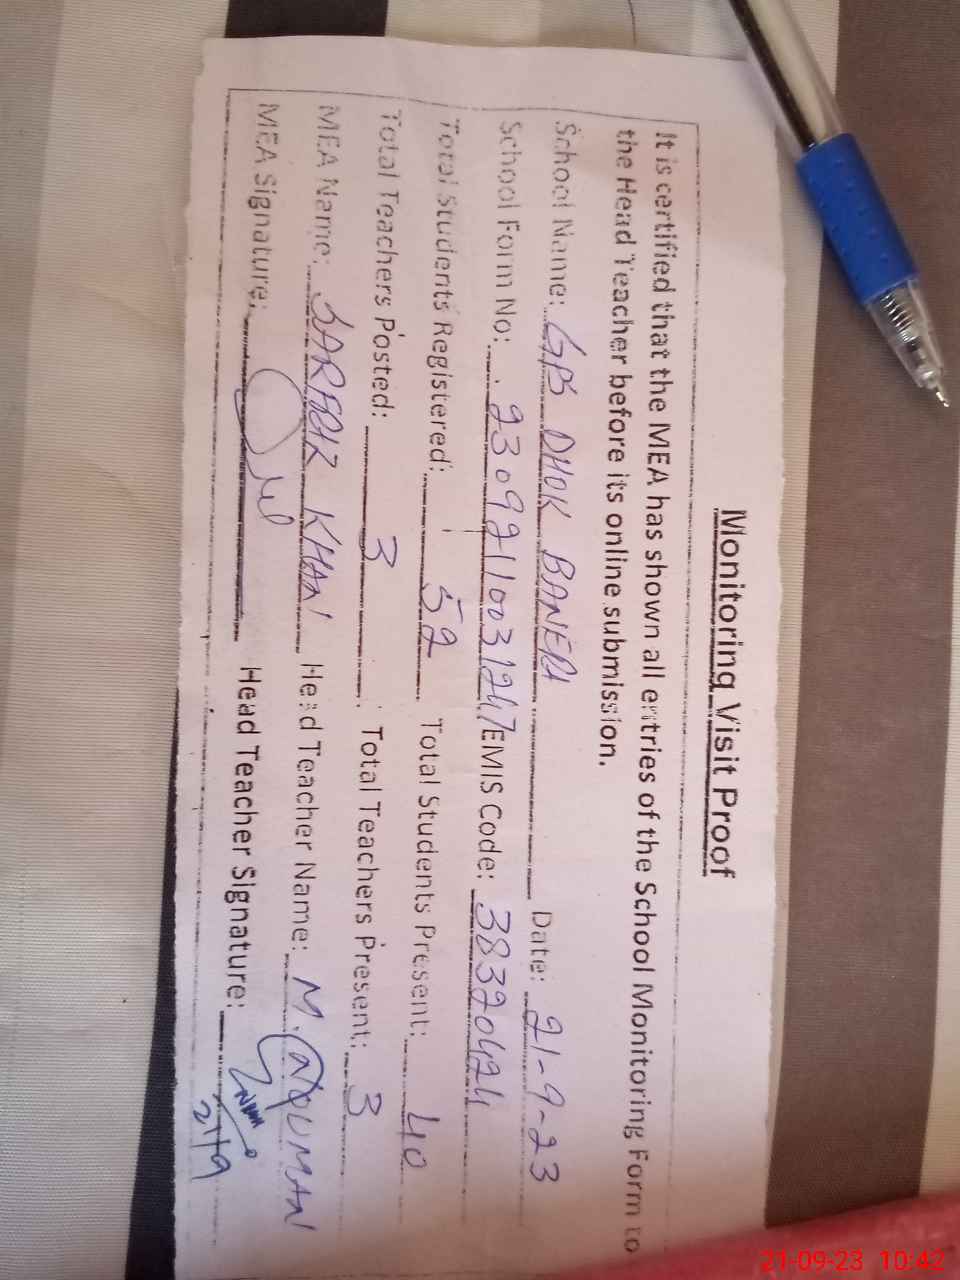 Monitoring Visit Proof
It is certified that the MEA has shown all entries of the School Monitoring Form to
the Head Teacher before its online submission.
School Name: GPS DHOK BANERA Date: 21-9-23
School Form No: 23092110031247 EMIS Code: 38320424
Total Students Registered: 52 Total Students Present: 40
Total Teachers Posted: 3 Total Teachers Present: 3
MEA Name: SARFRAZ KHAN Head Teacher Name: M.
MEA Signature: Head Teacher Signature:
21/9
21-09-23 10:42